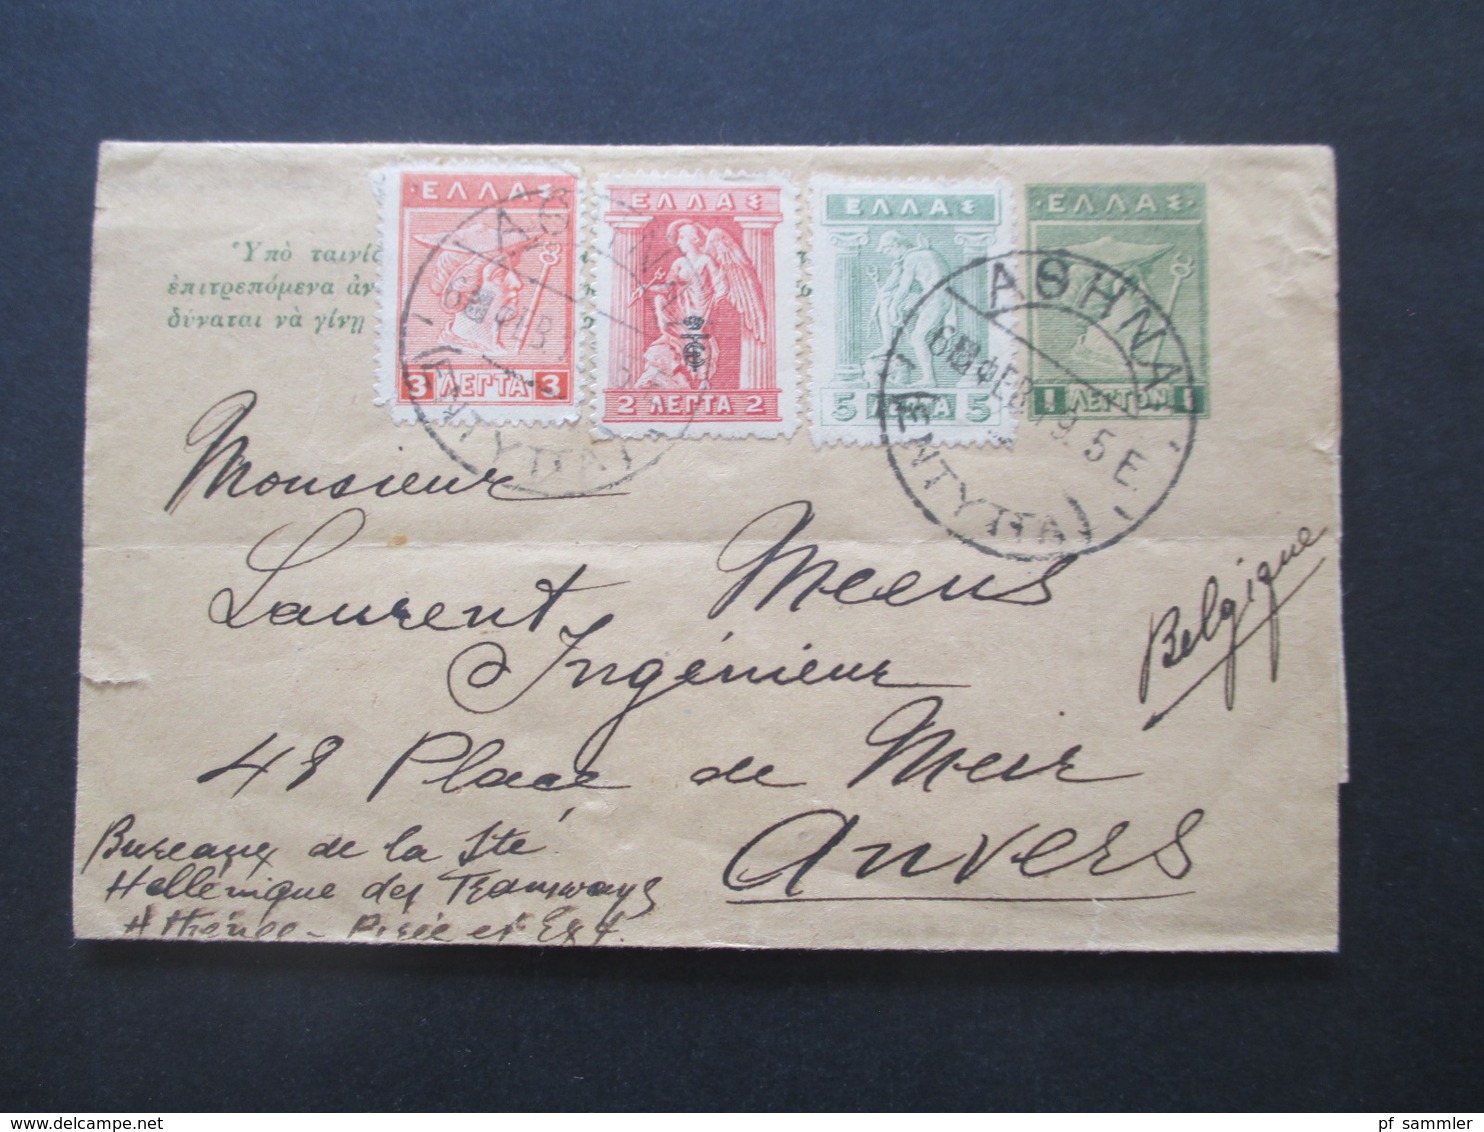 ΕΛΛΑΣ
3 ΛΕΠΤΑ 3
ΕΛΛΑΣ
2 ΛΕΠΤΑ 2
ΕΛΛΑΣ
5 ΛΕΠΤΑ 5
ΕΛΛΑΣ
1 ΛΕΠΤΟΝ 1
ΑΘΗΝΑΙ
6 ΦΕΒ
(ΕΝΤΥΠΑ)
ΑΘΗΝΑΙ
6 ΦΕΒ 19. 5 Ε
(ΕΝΤΥΠΑ)
Ὑπὸ ταινί
ἐπιτρεπόμενα ἀν
δύναται νὰ γίνῃ
Monsieur
Laurent Meeus
Ingénieur
48 Place de Meir
Anvers
Belgique
Bureaux de la Sté
Hellenique des Tramways
Athènes - Pirée et Ext.
pf sammler